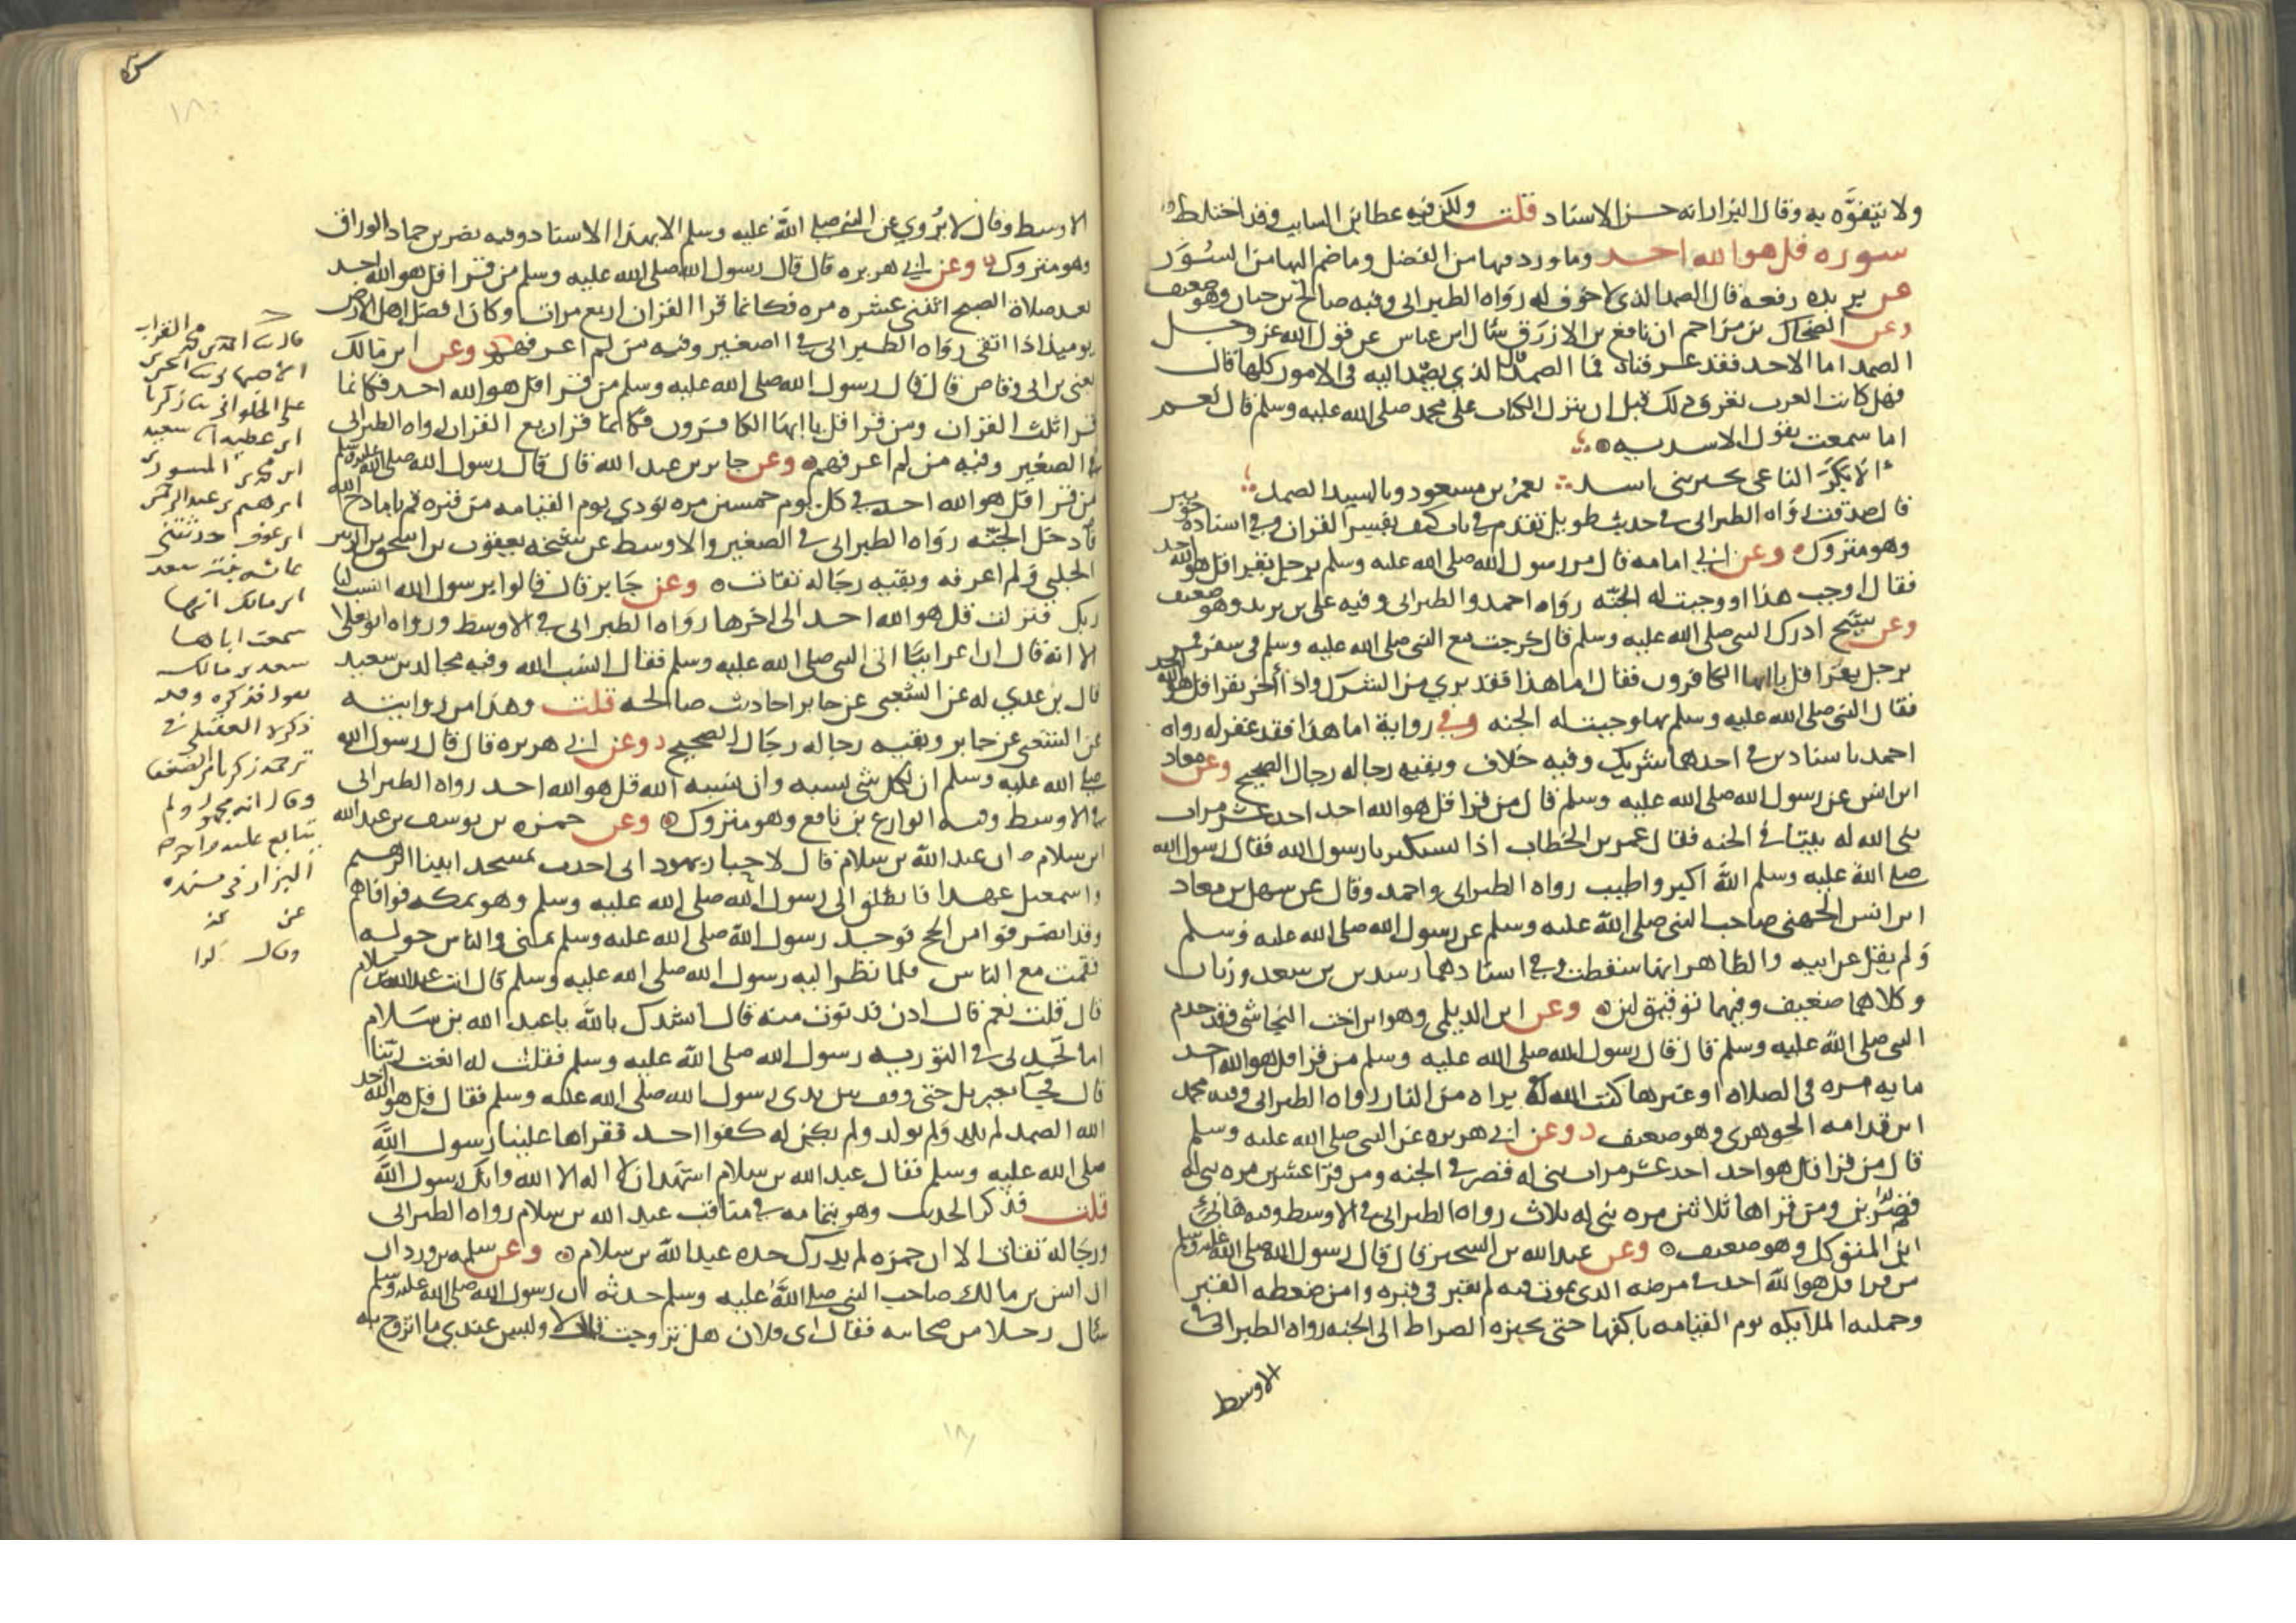 ولا يتفوه به وقال البزار انه حسن الاسناد قلت ولكن فيه عطا بن السايب وقد اختلط
سورة قل هو الله احد وما ورد فيها من الفضل وما ضم اليها من السور
عن بريده رفعه قال الصمد الذي لا جوف له رواه الطبراني وفيه صالح بن حبان وهو ضعيف
وعن الضحاك بن مزاحم ان نافع بن الازرق سأل ابن عباس عن قول الله عز وجل
الصمد اما الاحد فقد عرفناه فما الصمد قال الذي يصمد اليه في الامور كلها قال
فهل كانت العرب تعرف ذلك قبل ان ينزل الكتاب على محمد صلى الله عليه وسلم قال نعم
اما سمعت بقول الاسديه
الا بكر الناعي بخير بني اسد بعمرو بن مسعود وبالسيد الصمد
قال صدقت رواه الطبراني في حديث طويل تقدم في باب كيف يفسر القران وفي اسناده جويبر
وهو متروك وعن ابي امامه قال مر رسول الله صلى الله عليه وسلم برجل يقرا قل هو الله احد
فقال اوجب هذا او وجبت له الجنه رواه احمد والطبراني وفيه علي بن يزيد وهو ضعيف
وعن شيخ ادرك النبي صلى الله عليه وسلم قال خرجت مع النبي صلى الله عليه وسلم في سفر فمر
برجل يقرا قل يا ايها الكافرون فقال اما هذا فقد بري من الشرك واذا آخر يقرا قل هو الله احد
فقال النبي صلى الله عليه وسلم بها وجبت له الجنه وفي رواية اما هذا فقد غفر له رواه
احمد باسنادين في احدهما شريك وفيه خلاف وبقيه رجاله رجال الصحيح وعن معاذ
ابن انس عن رسول الله صلى الله عليه وسلم قال من قرا قل هو الله احد احد عشر مرات
بنى الله له بيتا في الجنه فقال عمر بن الخطاب اذا نستكثر يا رسول الله فقال رسول الله
صلى الله عليه وسلم الله اكبر واطيب رواه الطبراني واحمد وقال عن سهل بن معاذ
ابن انس الجهني صاحب النبي صلى الله عليه وسلم عن رسول الله صلى الله عليه وسلم
ولم يقل عن ابيه والظاهر انها سقطت وفي اسنادهما رشدين بن سعد وزبان
وكلاهما ضعيف وفيهما توثيق لين وعن ابن الديلمي وهو ابن اخت النجاشي وقد خدم
النبي صلى الله عليه وسلم قال قال رسول الله صلى الله عليه وسلم من قرا قل هو الله احد
مايه مره في الصلاه او غيرها كتب الله له براه من النار رواه الطبراني وفيه محمد
ابن قدامه الجوهري وهو ضعيف وعن ابي هريره عن النبي صلى الله عليه وسلم
قال من قرا قل هو احد احد عشر مرات بني له قصر في الجنه ومن قرا عشرين مره بني له
قصرين ومن قراها ثلاثين مره بني له ثلاث رواه الطبراني في الاوسط وفيه هاني
ابن المتوكل وهو ضعيف وعن عبد الله بن الشخير قال قال رسول الله صلى الله عليه وسلم
من قرا قل هو الله احد في مرضه الذي يموت فيه لم يفتن في قبره وامن ضغطه القبر
وحملته الملايكه يوم القيامه باكفها حتى تجيزه الصراط الى الجنه رواه الطبراني في
الاوسط
الاوسط وقال لا يروي عن النبي صلى الله عليه وسلم الا بهذا الاسناد وفيه نصر بن حماد الوراق
وهو متروك وعن ابي هريره قال قال رسول الله صلى الله عليه وسلم من قرا قل هو الله احد
بعد صلاة الصبح اثنتي عشره مره فكانما قرا القران اربع مرات وكان افضل اهل الارض
يوميذ اذا اتقى رواه الطبراني في الصغير وفيه من لم اعرفهم وعن ابن مالك
يعني بن ابي وقاص قال قال رسول الله صلى الله عليه وسلم من قرا قل هو الله احد فكانما
قرا ثلث القران ومن قرا قل يا ايها الكافرون فكانما قرا ربع القران رواه الطبراني
في الصغير وفيه من لم اعرفهم وعن جابر بن عبد الله قال قال رسول الله صلى الله عليه وسلم
من قرا قل هو الله احد في كل يوم خمسين مره نودي يوم القيامه من قبره قم يا مادح الله
فادخل الجنه رواه الطبراني في الصغير والاوسط عن شيخه يعقوب بن اسحق بن الزبير
الحلبي ولم اعرفه وبقيه رجاله ثقات وعن جابر قال قالوا يرسول الله انسب لنا
ربك فنزلت قل هو الله احد الى اخرها رواه الطبراني في الاوسط ورواه ابو يعلى
الا انه قال ان اعرابيا اتى النبي صلى الله عليه وسلم فقال انسب الله وفيه مجالد بن سعيد
قال بن عدي له عن الشعبي عن جابر احاديث صالحه قلت وهذا من روايته
عن الشعبي عن جابر وبقيه رجاله رجال الصحيح وعن ابي هريره قال قال رسول الله
صلى الله عليه وسلم ان لكل شي نسبه وان نسبه الله قل هو الله احد رواه الطبراني
في الاوسط وفيه الوازع بن نافع وهو متروك وعن حمزه بن يوسف بن عبد الله
ابن سلام ان عبد الله بن سلام قال لاحبار يهود اني احدث بمسجد ابينا ابرهيم
واسمعيل عهدا فانطلق الى رسول الله صلى الله عليه وسلم وهو بمكه فوافاهم
وقد انصرفوا من الحج فوجد رسول الله صلى الله عليه وسلم بمنى والناس حوله
فقمت مع الناس فلما نظر اليه رسول الله صلى الله عليه وسلم قال انت عبد الله بن سلام
قال قلت نعم قال ادن فدنوت منه قال انشدك بالله يا عبد الله بن سلام
اما تجدني في التوريه رسول الله صلى الله عليه وسلم فقلت له انعت ربنا
قال فجا جبريل حتى وقف بين يدي رسول الله صلى الله عليه وسلم فقال قل هو الله احد
الله الصمد لم يلد ولم يولد ولم يكن له كفوا احد فقراها علينا رسول الله
صلى الله عليه وسلم فقال عبد الله بن سلام اشهد ان لا اله الا الله وانك رسول الله
قلت فذكر الحديث وهو بتمامه في مناقب عبد الله بن سلام رواه الطبراني
ورجاله ثقات الا ان حمزه لم يدرك جده عبد الله بن سلام وعن سلمه بن وردان
ان انس بن مالك صاحب النبي صلى الله عليه وسلم حدثه ان رسول الله صلى الله عليه وسلم
سأل رجلا من صحابه فقال اي فلان هل تزوجت قال لا وليس عندي ما اتزوج به
الاصبهاني
علي الحلواني ثنا زكريا
ابن عطيه ثنا سعيد
ابن محمد بن المسور بن
ابرهيم بن عبد الرحمن
ابن عوف حدثتني
عائشه بنت سعد
ابن مالك انها
سمعت اباها
سعد بن مالك
يقول فذكره وقد
ذكره العقيلي في
ترجمة زكريا من الضعفا
وقال انه مجهول ولم
يتابع عليه واخرجه
البزار في مسنده
عن
وقال كذا